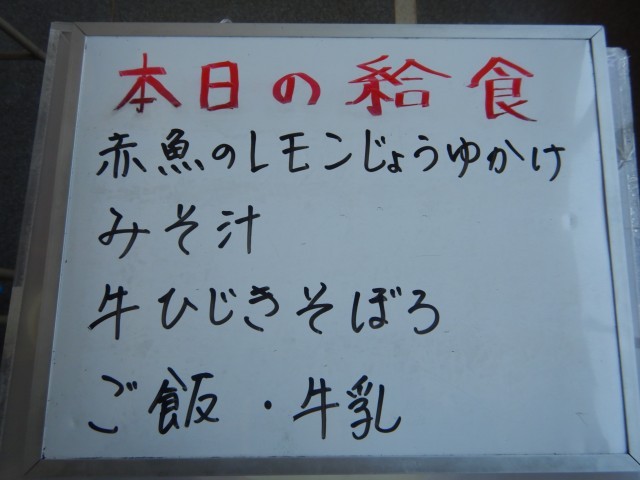 本日の給食
赤魚のレモンじょうゆかけ
みそ汁
牛ひじきそぼろ
ご飯・牛乳